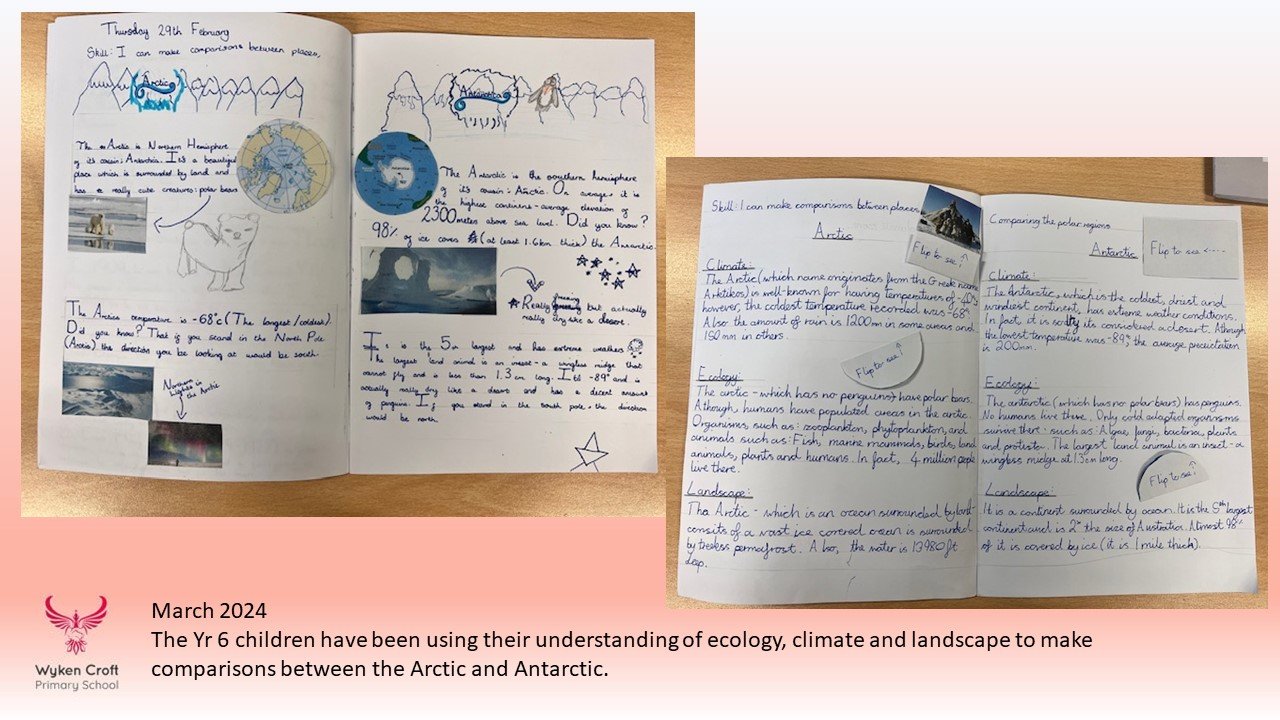 Thursday 29th February
Skill: I can make comparisons between places,
Arctic
The Arctic is Northern Hemisphere
of its cousin: Antarctica. It's a beautiful
place which is surrounded by land and
has really cute creatures: polar bears
The Arctics temperature is -68°c (The longest/coldest).
Did you know? That if you stand in the North Pole
(Arctic) the direction you be looking at would be south.
Northern
Lights in
the Arctic
Antarctica
The Antarctic is the southern hemisphere
of its cousin: Arctic. On average, it is
the highest continent - average elevation of
2300 meters above sea level. Did you know?
98% of ice covers (at least 1.6km thick) the Antarctic.
Really freezing but actually
really dry like a desert.
It is the 5th largest and has extreme weathers.
The largest land animal is an insect - a wingless midge that
cannot fly and is less than 1.3cm long. It's -89° and is
actually really dry like a desert and has a decent amount
of penguins. If you stand in the south pole, the direction
would be north.
Skill: I can make comparisons between places
Arctic
Flip to see ↑
Climate:
The Arctic (which name originates from the Greek name
Arktikos) is well-known for having temperatures of -40°c
however, the coldest temperature recorded was -68°
Also the amount of rain is 1200m in some areas and
150 mm in others.
Flip to see ↑
Ecology:
The arctic - which has no penguins - have polar bears.
Although, humans have populated areas in the arctic.
Organisms, such as: zooplankton, phytoplankton, and
animals such as: Fish, marine mammals, birds, land
animals, plants and humans. In fact, 4 million people
live there.
Landscape:
The Arctic - which is an ocean surrounded by land -
consits of a vast ice covered ocean is surrounded
by treeless permafrost. Also, the water is 13980 ft
deep.
Comparing the polar regions
Antarctic
Flip to see <----
Climate:
The Antarctic, which is the coldest, driest and
windiest continent, has extreme weather conditions.
In fact, it is so dry its considered a desert. Although
the lowest temperature was -89°, the average precipitation
is 200mm.
Ecology:
The antarctic (which has no polar bears) has penguins.
No humans live there. Only cold adapted organisms
survive there: such as: Algae, fungi, bacteria, plants
and protista. The largest land animal is an insect - a
wingless midge at 1.3cm long.
Flip to see ↑
Landscape:
It is a continent surrounded by ocean. It is the 5th largest
continent and is 2x the size of Australia. Almost 98%
of it is covered by ice (it is 1 mile thick).
Wyken Croft
Primary School
March 2024
The Yr 6 children have been using their understanding of ecology, climate and landscape to make
comparisons between the Arctic and Antarctic.